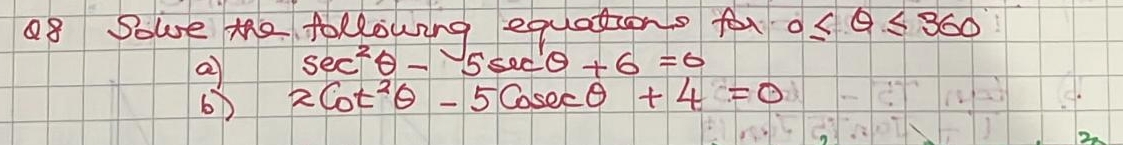 Q8 Solve the following equations for 0 ≤ θ ≤ 360
a) sec²θ - 5secθ + 6 = 6
b) 2Cot²θ - 5Cosecθ + 4 = 0